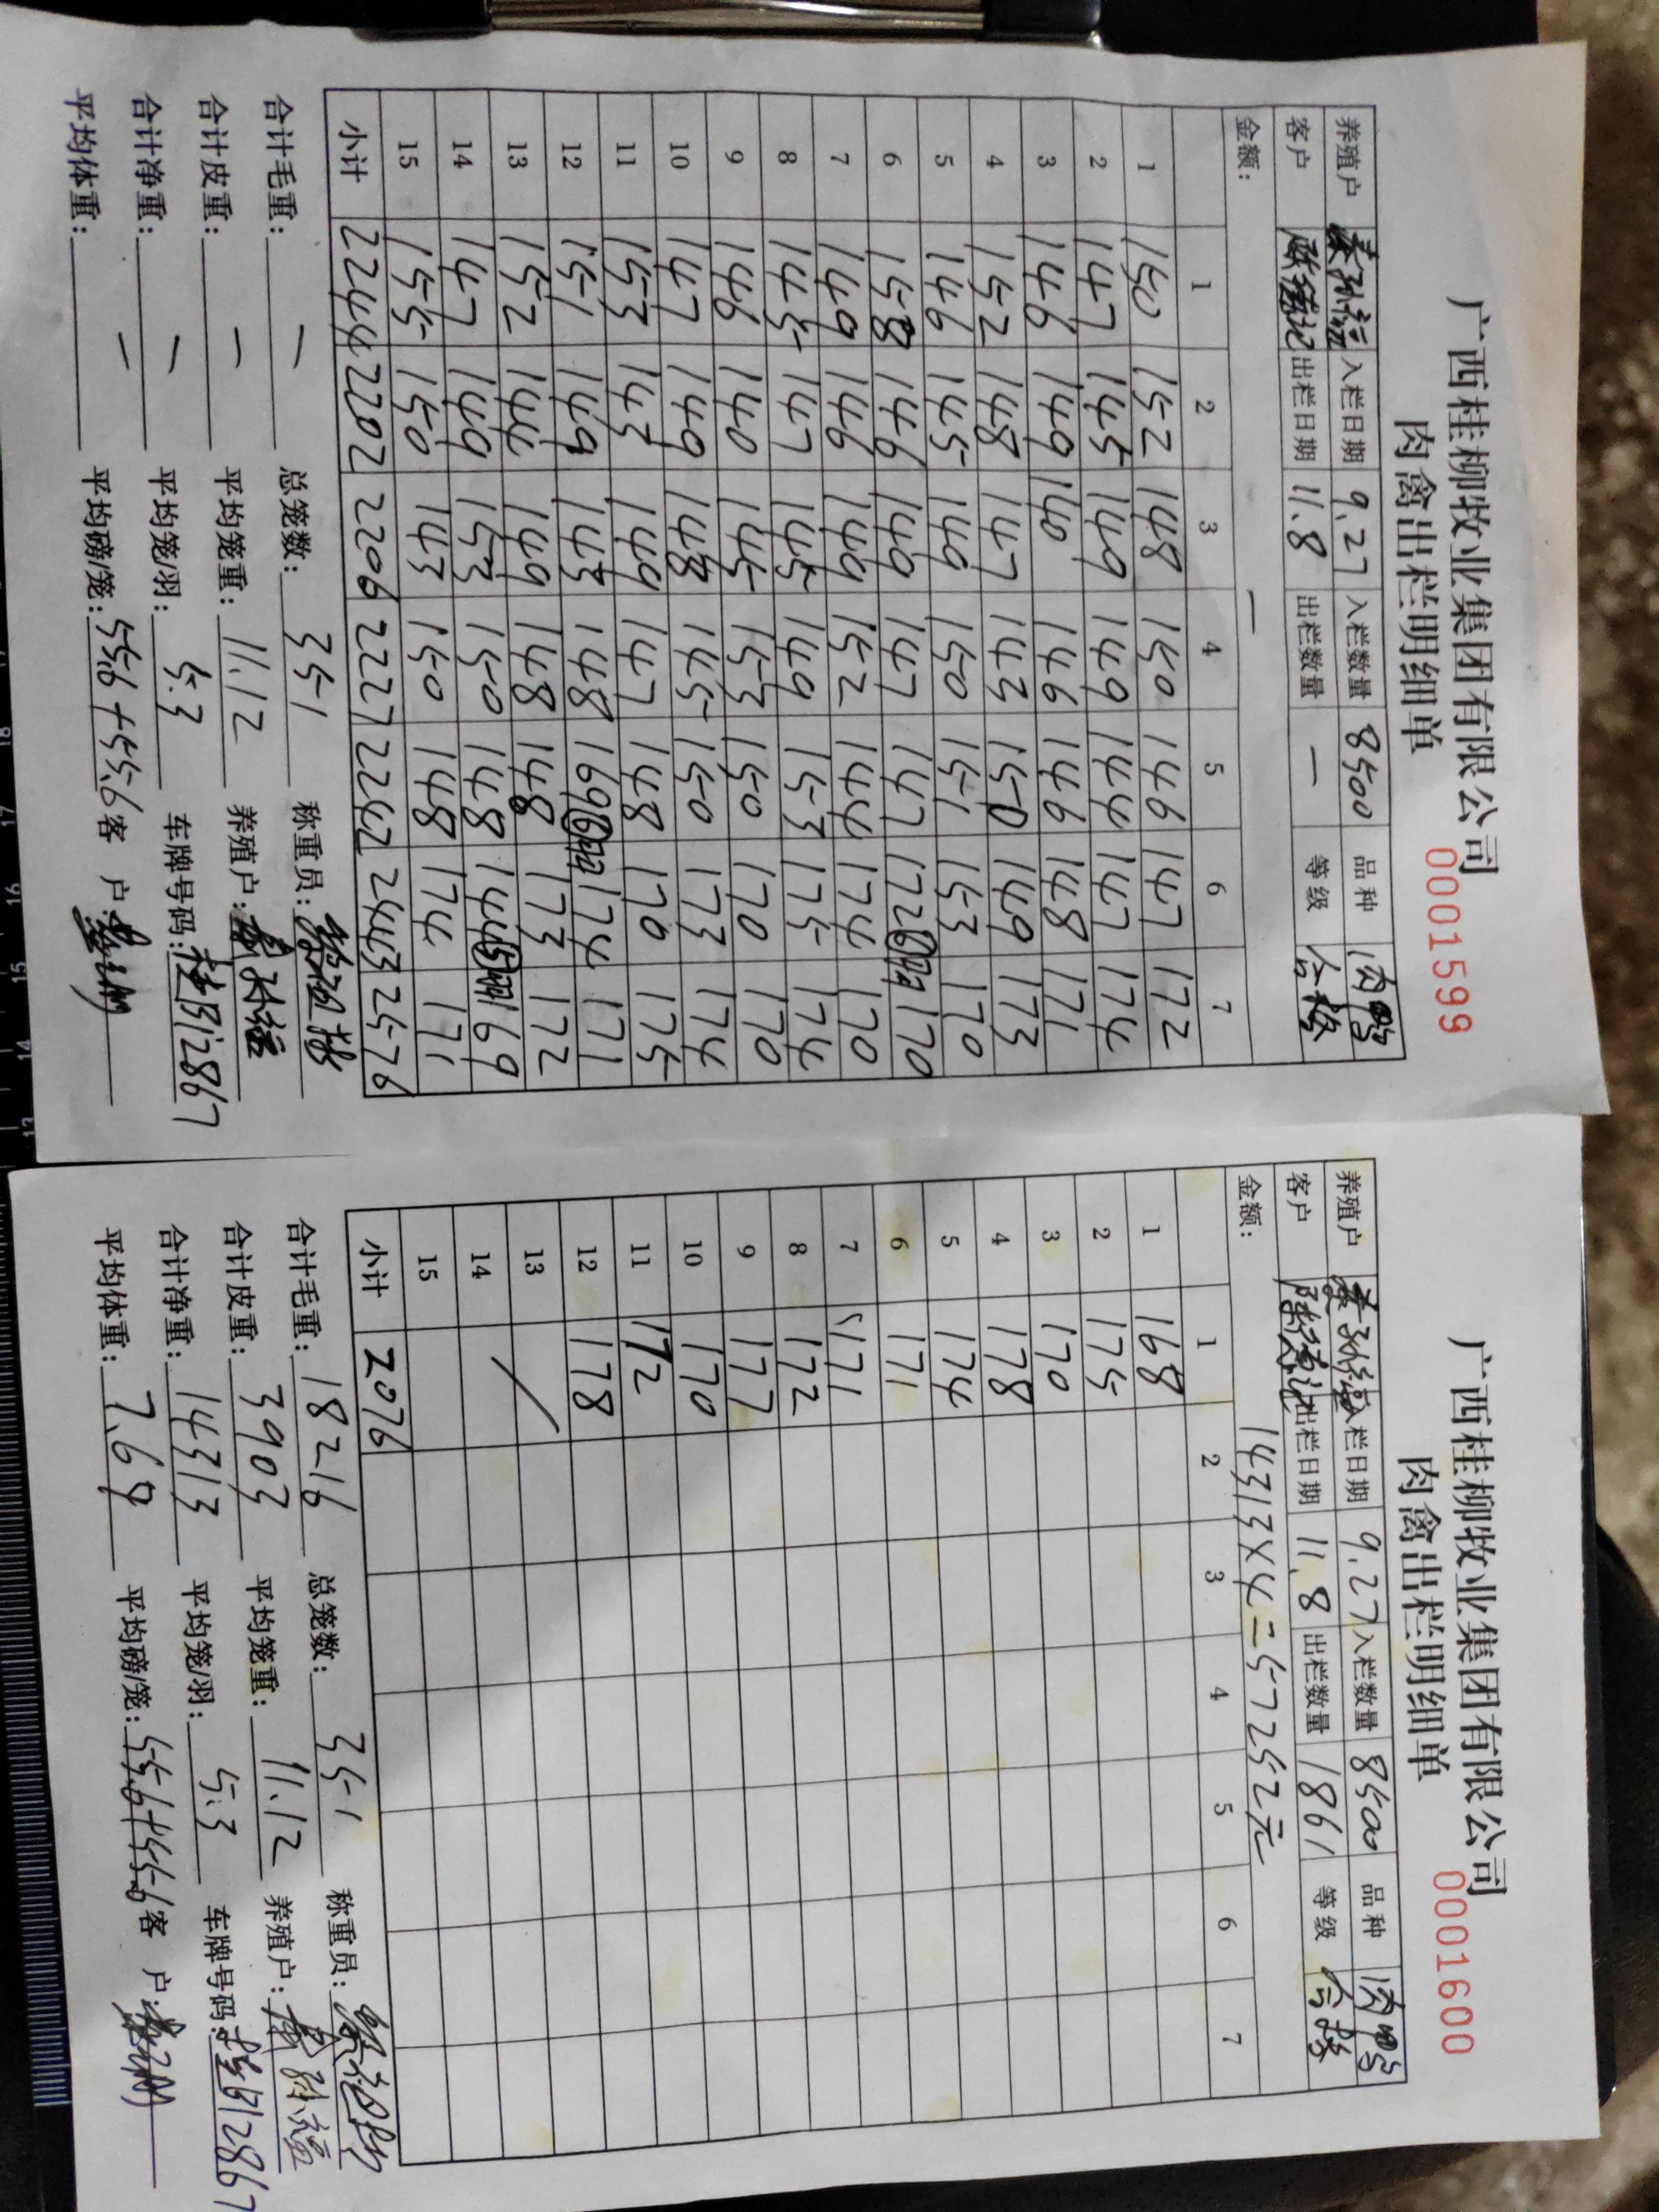 广西桂柳牧业集团有限公司
肉禽出栏明细单
0001599
养殖户 入栏日期 9.27 入栏数量 8500 品种 肉鸭
客户 出栏日期 11.8 出栏数量 — 等级 合格
金额: —
1 2 3 4 5 6 7
1 150 152 148 150 146 147 172
2 147 145 149 149 144 147 174
3 146 149 140 146 146 148 171
4 152 148 147 143 150 149 173
5 146 145 149 150 151 153 170
6 158 146 149 147 147 172 170
7 149 146 149 152 144 174 170
8 145 147 145 149 153 175 174
9 146 140 145 153 150 170 170
10 147 149 148 145 150 173 174
11 153 143 149 147 148 170 175
12 151 149 143 148 169 174 171
13 152 144 149 148 148 173 172
14 147 149 153 150 148 144 169
15 155 150 143 150 148 174 171
小计 2244 2202 2206 2227 2242 2443 2576
合计毛重: — 总笼数: 351 称重员:
合计皮重: — 平均笼重: 11.12 养殖户:
合计净重: — 平均笼/羽: 5.3 车牌号码: 12867
平均体重: — 平均磅/笼: 55.6+55.6 客户:
广西桂柳牧业集团有限公司
肉禽出栏明细单
0001600
养殖户 入栏日期 9.27 入栏数量 8500 品种 肉鸭
客户 出栏日期 11.8 出栏数量 1861 等级 合格
金额: 14313×4=57252元
1 2 3 4 5 6 7
1 168
2 175
3 170
4 178
5 174
6 171
7 171
8 172
9 177
10 170
11 172
12 178
13
14
15
小计 2076
合计毛重: 18216 总笼数: 351 称重员:
合计皮重: 3903 平均笼重: 11.12 养殖户:
合计净重: 14313 平均笼/羽: 5.3 车牌号码: 12867
平均体重: 7.69 平均磅/笼: 55.6+55.6 客户: